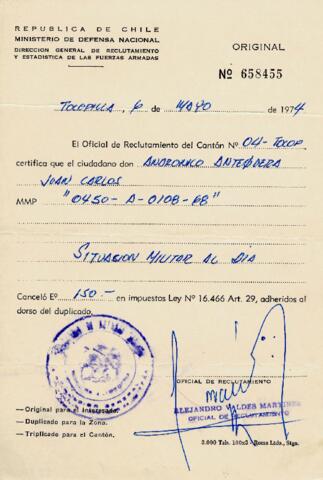 REPUBLICA DE CHILE
MINISTERIO DE DEFENSA NACIONAL
DIRECCION GENERAL DE RECLUTAMIENTO
Y ESTADISTICA DE LAS FUERZAS ARMADAS
ORIGINAL
Nº 658455
TOCOPILLA, 6 de MAYO de 1974
El Oficial de Reclutamiento del Cantón Nº 04-TOCOP.
certifica que el ciudadano don ANDRONICO ANTEQUERA
JUAN CARLOS
MMP "0450-A-0108-68"
SITUACION MILITAR AL DIA
Canceló Eº 150.- en impuestos Ley Nº 16.466 Art. 29, adheridos al
dorso del duplicado.
OFICIAL DE RECLUTAMIENTO
ALEJANDRO VALDES MARTINEZ
OFICIAL DE RECLUTAMIENTO
—Original para el Interesado.
—Duplicado para la Zona.
—Triplicado para el Cantón.
3.000 Tals. 100x3 - Roma Ltda., Stgo.